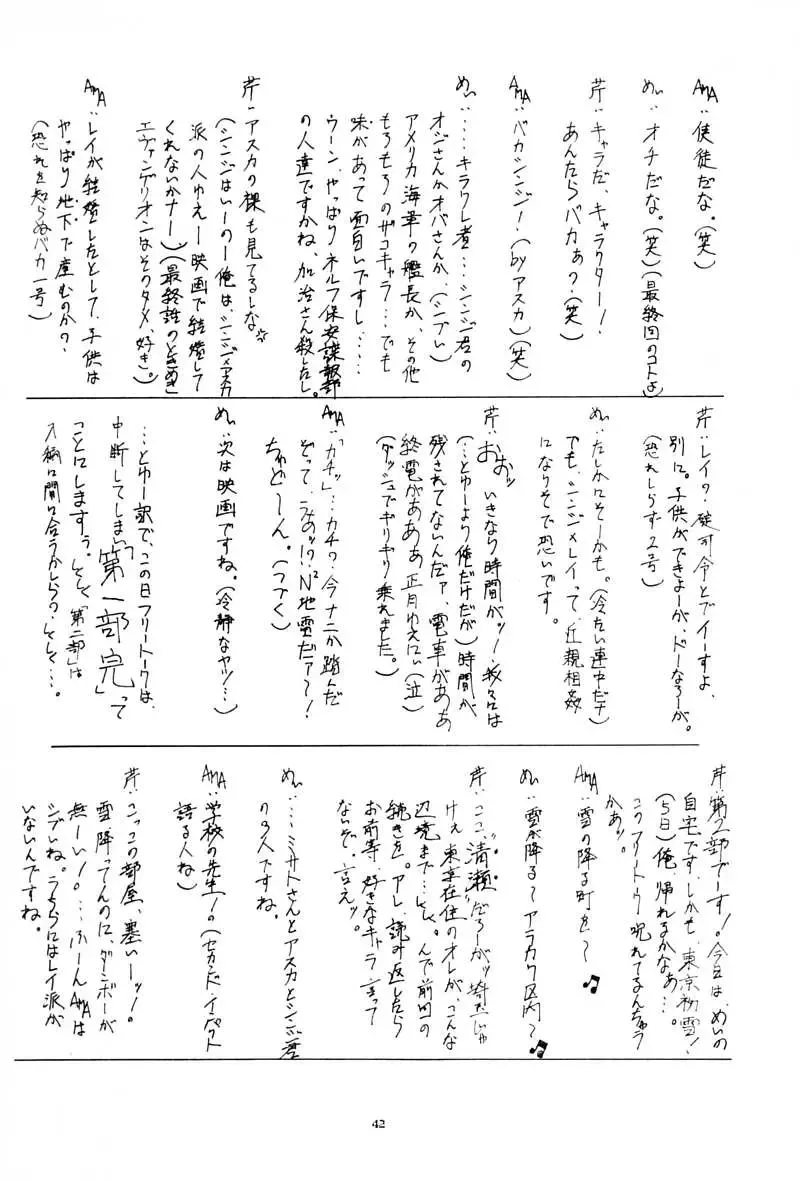 AMA:使徒だな。(笑)
めぃ:オチだな。(笑)(最終回のコトよ)
芹:キャラだ、キャラクター!
あんたらバカぁ?(笑)
AMA:バカシンジ!(byアスカ)(笑)
めぃ:……キラワレ者……シンジ君の
オジさんかオバさんか、(シブい)
アメリカ海軍の艦長か、その他
もろもろのザコキャラ…でも
味があって面白いですし……
ウーン、やっぱりネルフ保安諜報部
の人達ですかね、加治さん殺したし。
芹:アスカの裸も見てるしな
(シンジはいーのー俺は、シンジ×アスカ
派の人ゆえー映画で結婚して
くれないかナー)(最終話のときめき
エヴァンゲリオンはそのタメ、好き)。
AMA:レイが結婚したとして、子供は
やっぱり地下で産むのか?
(恐れを知らぬバカ一号)
芹:レイ?碇司令とでイーすよ、
別に。子供ができよーが、ドーなろーが。
(恐れしらず2号)
めぃ:たしかにそーかも。(冷たい連中だナ)
でも、シンジ×レイって、近親相姦
になりそで恐いです。
芹:おおッ いきなり時間がッ!我々には
(…とゆーより俺だけだが)時間が
残されてないんだァ、電車がああ
終電がああああ正月ゆえにぃ(泣)
(ダッシュでギリギリ乗れました。)
AMA:「カチッ」…カチ?今ナニか踏んだ
ぞって、うおッ!?N²地雷だァ〜!
ちゅどーん。(つづく)
めぃ:次は映画ですね。(冷静なヤツ…)
…とゆー訳で、この日フリートークは、
中断してしまい「第一部完」って
ことにします。そして「第二部」は
入稿に間に合うかしら?、そして…。
芹:第2部でーす!今日は、めぃの
自宅です。しかも、東京初雪!
(5日)俺、帰れるかなあ…。
このフリートーク呪れてるんちゃう
かあッ。
AMA:雪の降る町を〜♪
めぃ:雪が降る〜アラカワ区内〜♪
芹:ここ、"清瀬"だろーがッ埼玉じゃ
けぇ、東京在住のオレが、こんな
辺境まで…そして。んで前回の
続きを。アレ、読み返したら
お前等、好きなキャラ言って
ないぞ。言えッ。
めぃ:……ミサトさんとアスカとシンジ君
の3人ですね。
AMA:学校の先生!。(セカンド・インパクト
語る人ね)
芹:こっこの部屋、寒いーッ!
雪降ってんのに、ダンボーが
無ーい!。…ふーんAMAは
シブいね。うちらにはレイ派が
いないんですね。
42